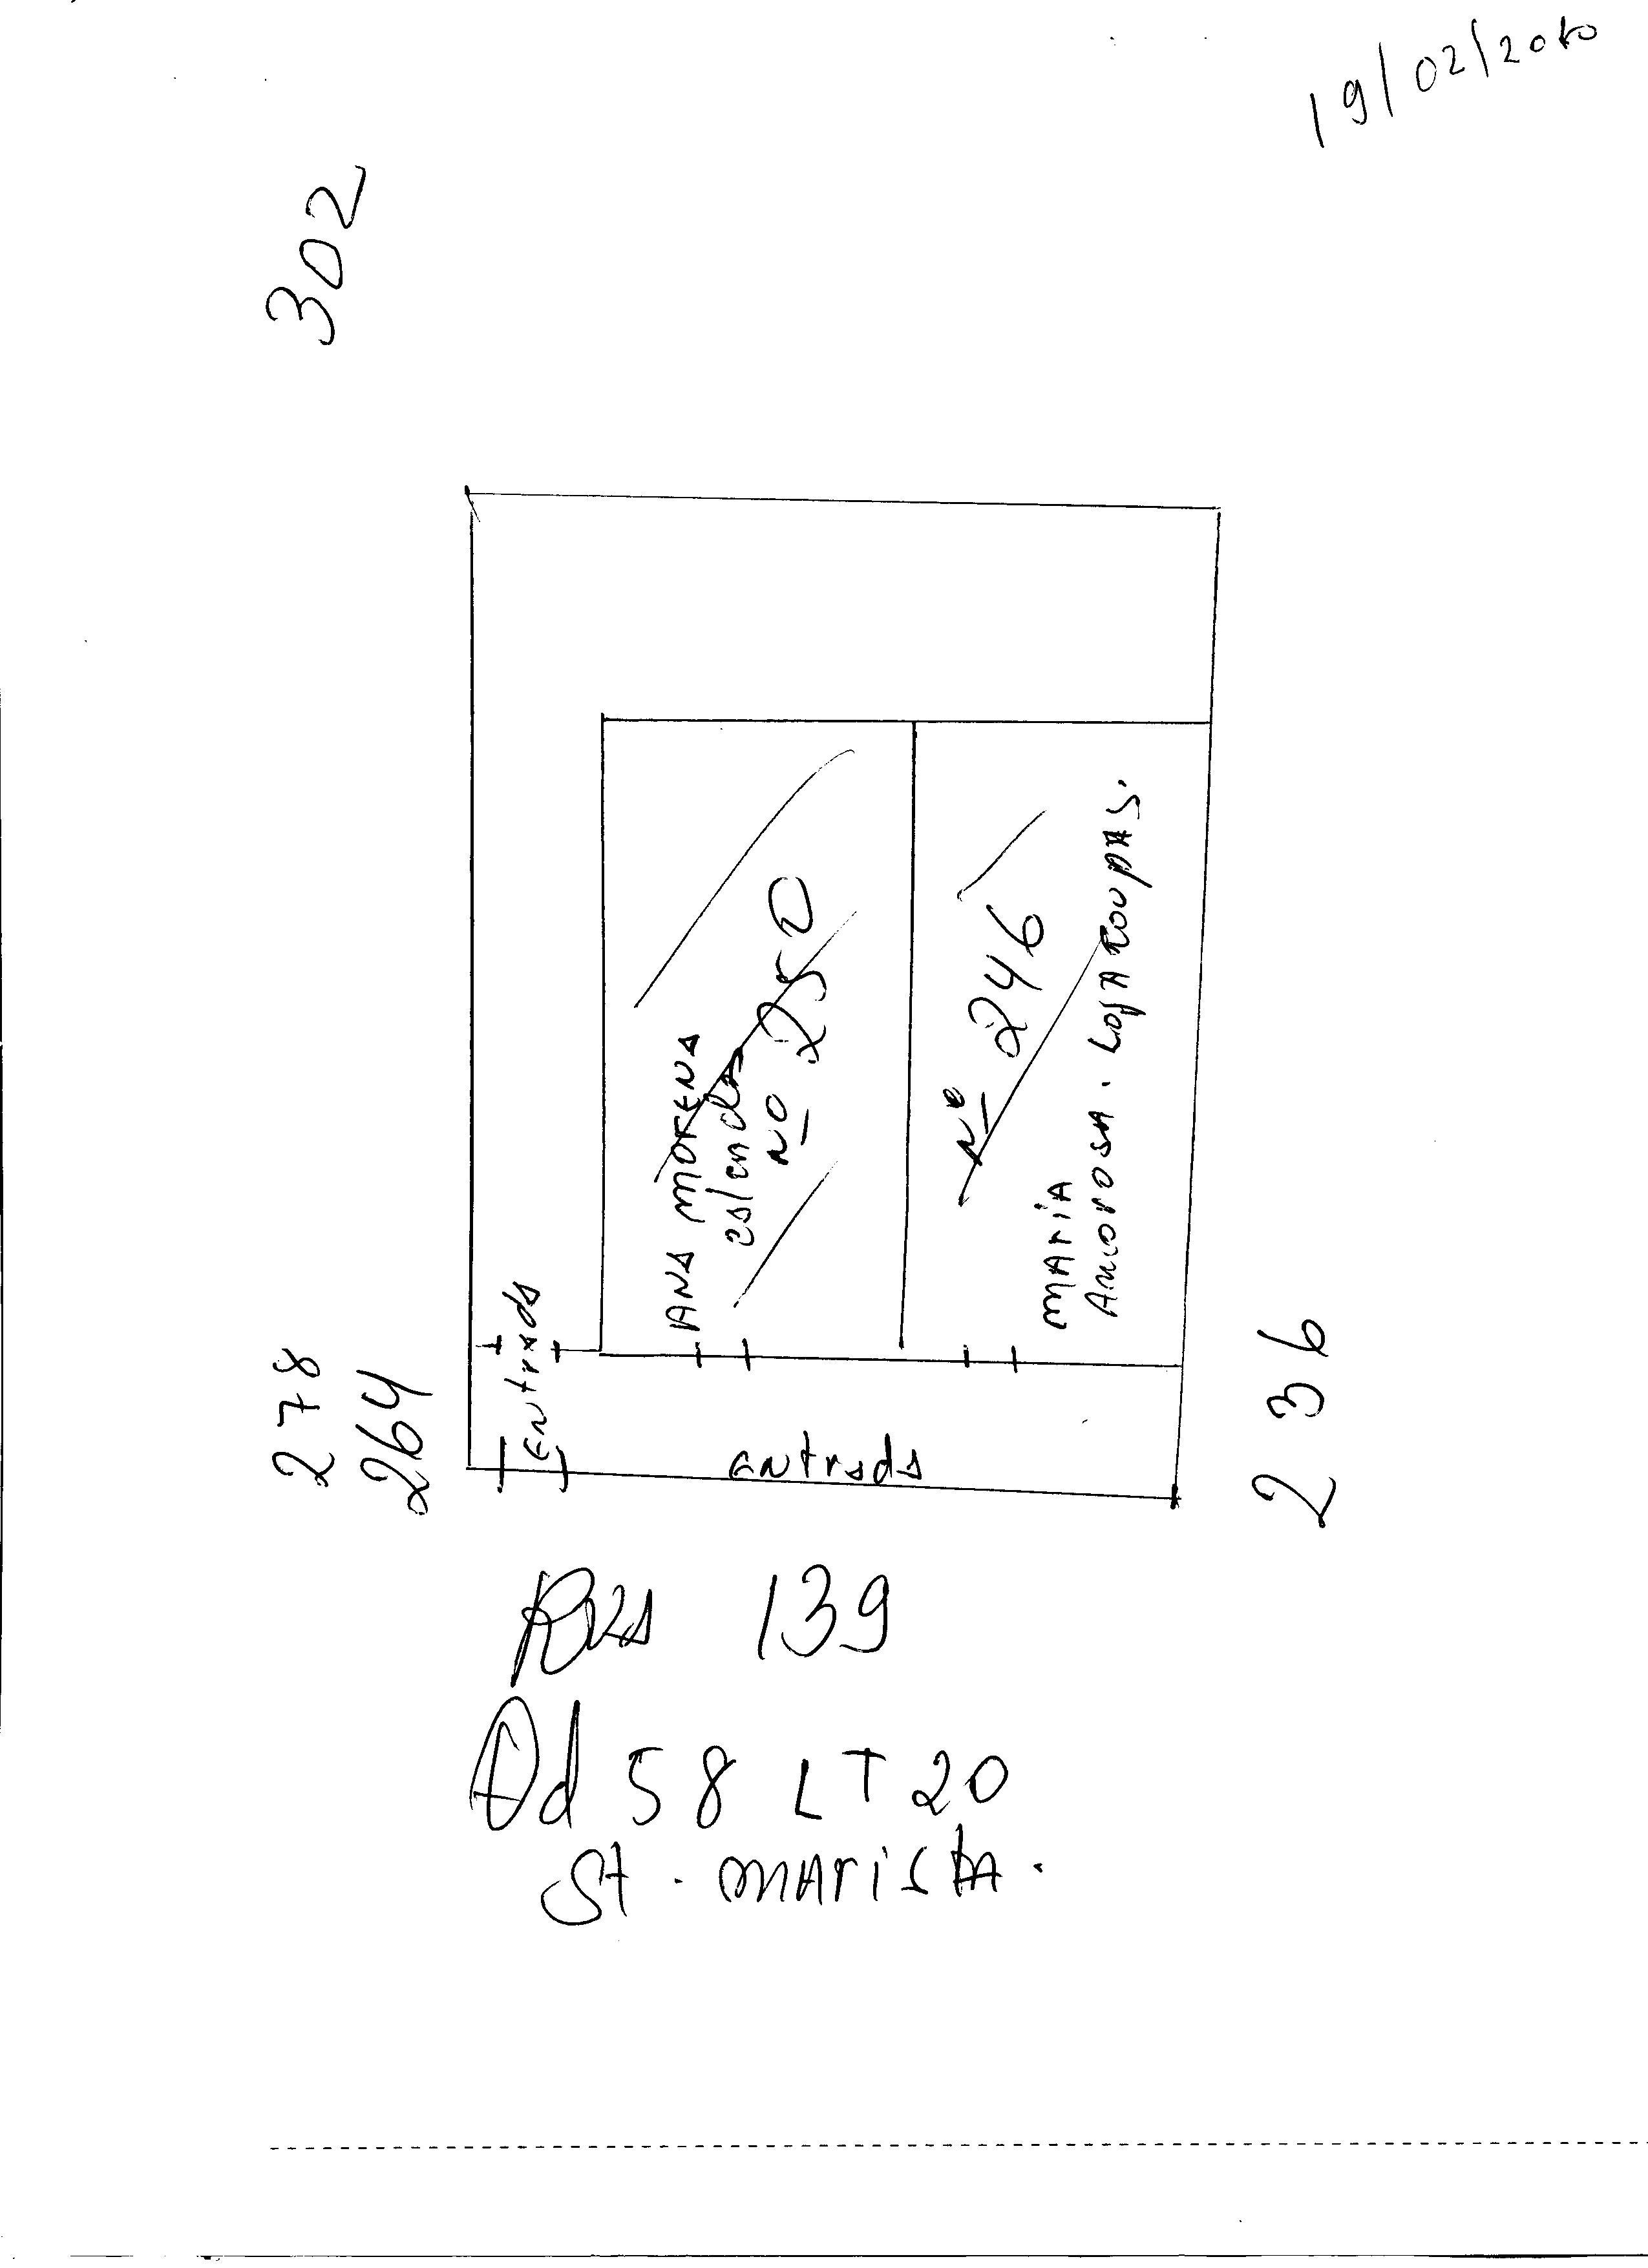 19/02/2010
302
ANA MORENA
Nº 250
Nº 246
MARIA
AMOROSA. LOJA ROUPAS.
Entrada
278
264
entrada
236
RUA 139
Qd 58 LT 20
St. MARISTA.